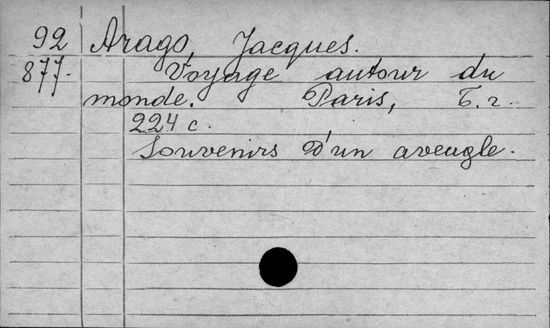 92 Arago, Jacques.
877. Voyage autour du
monde. Paris, Б. г.
224 с.
Souvenirs d'un aveugle.